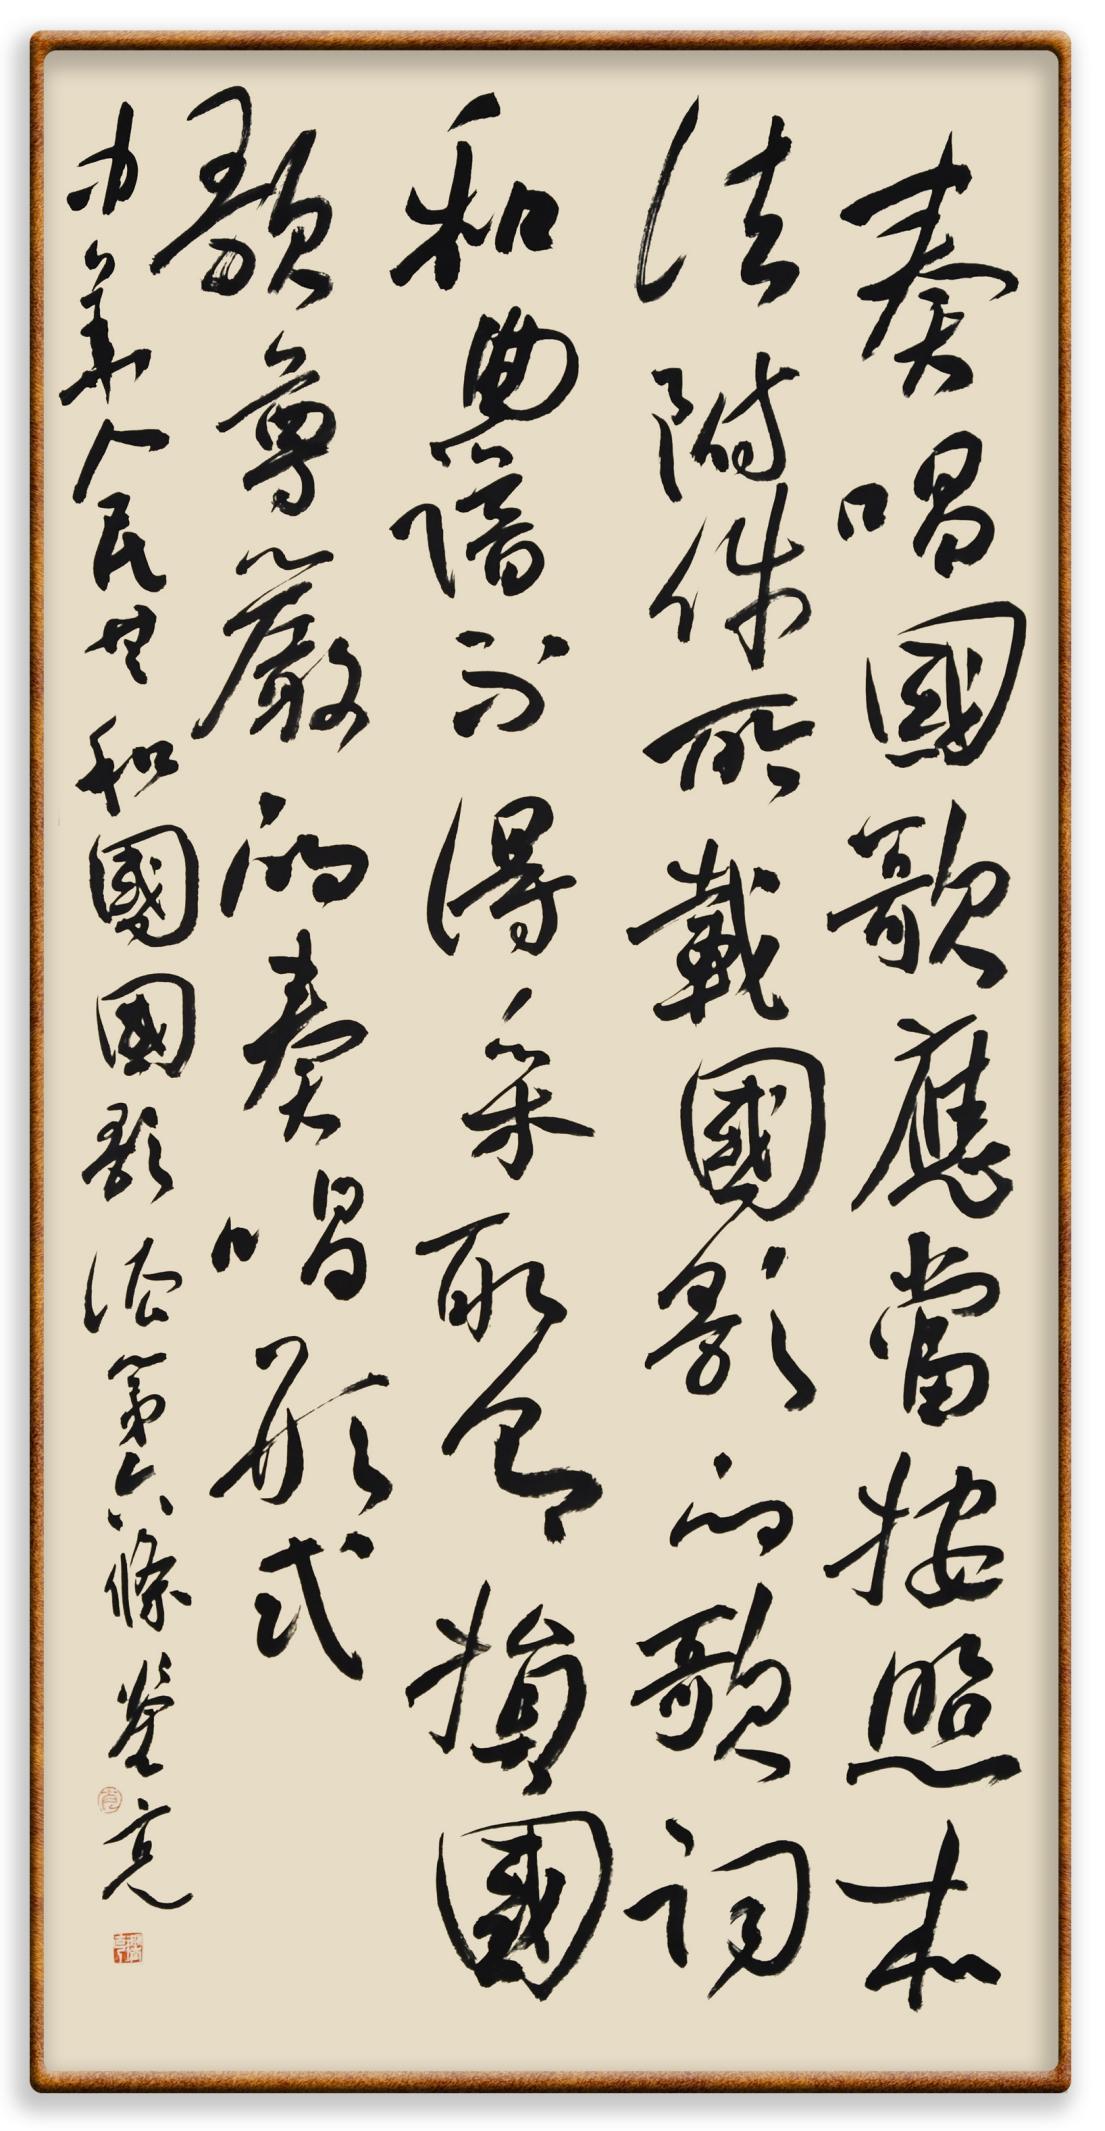 奏唱國歌應當按照本
法附件所載國歌的歌詞
和曲譜不得采取有損國
歌尊嚴的奏唱形式
中華人民共和國國歌法第六條 榮亮